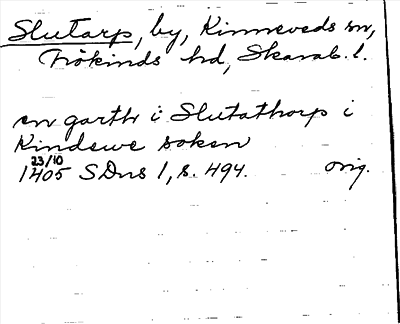 Slutarp, by, Kinneveds sn,
Frökinds hd, Skarab. l.
en garth i Slutathorp i
Kindewe soken
23/10
1405 SDns 1, s. 494. orig.